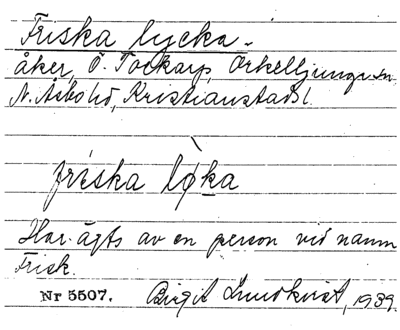 Friska lycka -
åker, Ö. Tockarp, Örkelljunga sn.
N. Åsbo hd, Kristianstads l.
friska lø̀ka
Har ägts av en person vid namn
Frisk.
Nr 5507. Birgit Lundkvist, 1939.